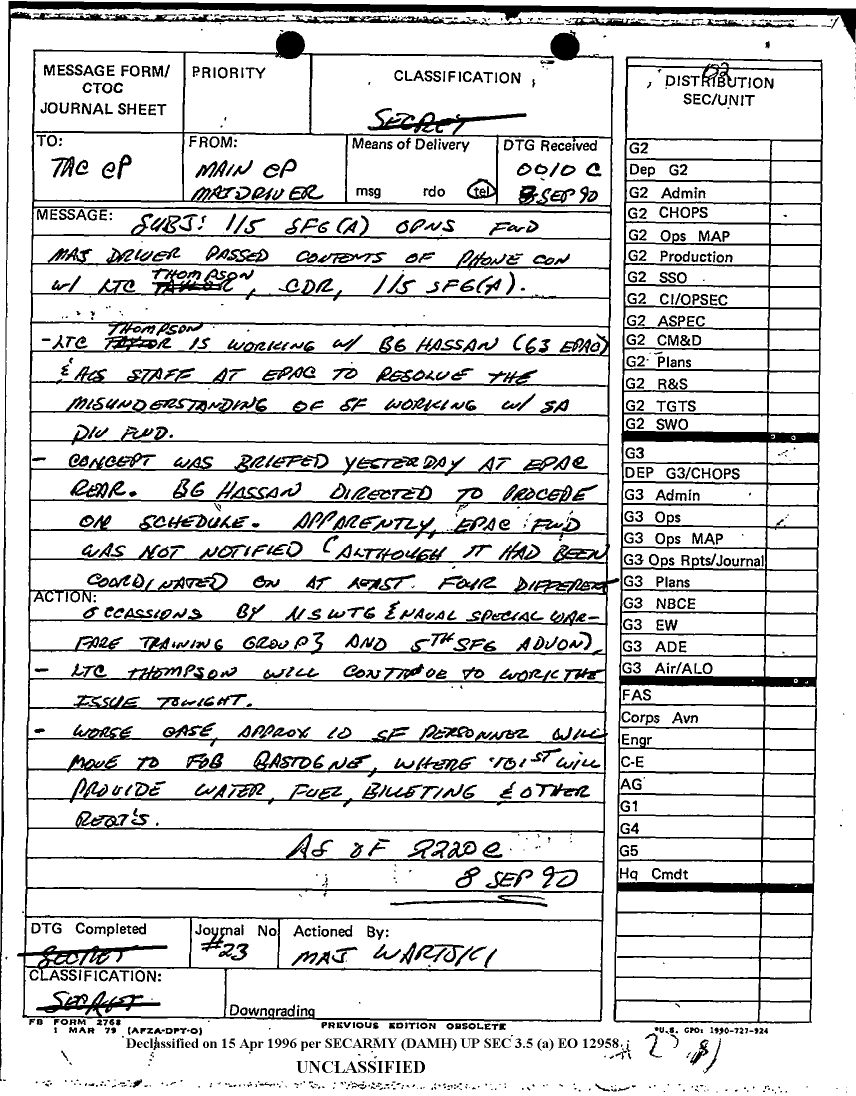 MESSAGE FORM/
CTOC
JOURNAL SHEET
PRIORITY
CLASSIFICATION
SECRET
DISTRIBUTION
SEC/UNIT
TO:
TAC CP
FROM:
MAIN CP
MAJ DRIVER
Means of Delivery
msg rdo tel
DTG Received
0010 C
SEP 90
MESSAGE:
SUBJ: 1/5 SFG(A) OPNS FWD
MAJ DRIVER PASSED CONTENTS OF PHONE CON
THOMPSON
w/ LTC TAYLOR, CDR, 1/5 SFG(A).
THOMPSON
- LTC TAYLOR IS WORKING w/ BG HASSAN (G3 EPAC)
& HIS STAFF AT EPAC TO RESOLVE THE
MISUNDERSTANDING OF SF WORKING w/ SA
DIV FWD.
- CONCEPT WAS BRIEFED YESTERDAY AT EPAC
REAR. BG HASSAN DIRECTED TO PROCEDE
ON SCHEDULE. APPARENTLY, EPAC FWD
WAS NOT NOTIFIED (ALTHOUGH IT HAD BEEN
COORDINATED ON AT LEAST FOUR DIFFERENT
ACTION:
OCCASSIONS BY NSWTG {NAVAL SPECIAL WAR-
FARE TRAINING GROUP} AND 5TH SFG ADVON).
- LTC THOMPSON WILL CONTINUE TO WORK THE
ISSUE TONIGHT.
- WORSE CASE, APPROX 10 SF PERSONNEL WILL
MOVE TO FOB BASTOGNE, WHERE 101ST WILL
PROVIDE WATER, FUEL, BILLETING & OTHER
REQT'S.
AS OF 2220C
8 SEP 90
DTG Completed
SECRET
Journal No
#23
Actioned By:
MAJ WARTSKI
CLASSIFICATION:
SECRET
Downgrading
G2
Dep G2
G2 Admin
G2 CHOPS
G2 Ops MAP
G2 Production
G2 SSO
G2 CI/OPSEC
G2 ASPEC
G2 CM&D
G2 Plans
G2 R&S
G2 TGTS
G2 SWO
G3
DEP G3/CHOPS
G3 Admin
G3 Ops
G3 Ops MAP
G3 Ops Rpts/Journal
G3 Plans
G3 NBCE
G3 EW
G3 ADE
G3 Air/ALO
FAS
Corps Avn
Engr
C-E
AG
G1
G4
G5
Hq Cmdt
FB FORM 2768
1 MAR 79 (AFZA-DPT-O)
PREVIOUS EDITION OBSOLETE
*U.S. GPO: 1990-727-924
Declassified on 15 Apr 1996 per SECARMY (DAMH) UP SEC 3.5 (a) EO 12958
UNCLASSIFIED